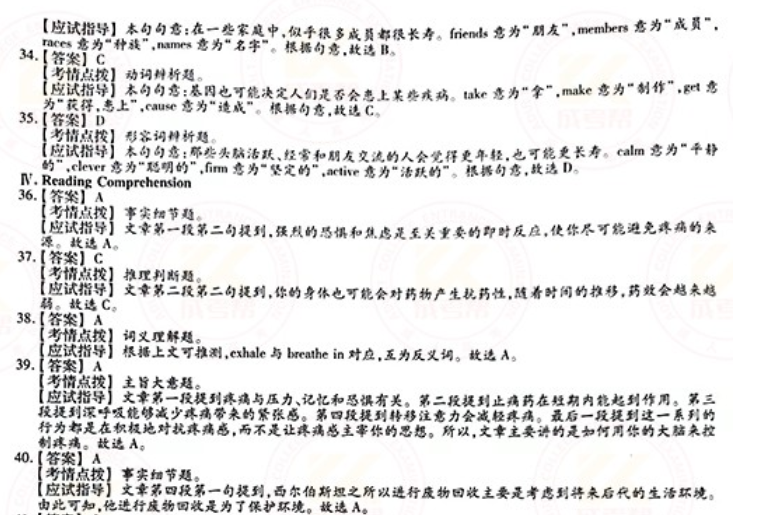 【应试指导】本句句意:在一些家庭中,似乎很多成员都很长寿。friends 意为“朋友”,members 意为“成员”,
races 意为“种族”,names 意为“名字”。根据句意,故选 B。
34.【答案】C
【考情点拨】动词辨析题。
【应试指导】本句句意:基因也可能决定人们是否会患上某些疾病。take 意为“拿”,make 意为“制作”,get 意
为“获得,患上”,cause 意为“造成”。根据句意,故选 C。
35.【答案】D
【考情点拨】形容词辨析题。
【应试指导】本句句意:那些头脑活跃、经常和朋友交流的人会觉得更年轻,也可能更长寿。calm 意为“平静
的”,clever 意为“聪明的”,firm 意为“坚定的”,active 意为“活跃的”。根据句意,故选 D。
Ⅳ. Reading Comprehension
36.【答案】A
【考情点拨】事实细节题。
【应试指导】文章第一段第二句提到,强烈的恐惧和焦虑是至关重要的即时反应,使你尽可能避免疼痛的来
源。故选 A。
37.【答案】C
【考情点拨】推理判断题。
【应试指导】文章第二段第二句提到,你的身体也可能会对药物产生抗药性,随着时间的推移,药效会越来越
弱。故选 C。
38.【答案】A
【考情点拨】词义理解题。
【应试指导】根据上文可推测,exhale 与 breathe in 对应,互为反义词。故选 A。
39.【答案】A
【考情点拨】主旨大意题。
【应试指导】文章第一段提到疼痛与压力、记忆和恐惧有关。第二段提到止痛药在短期内能起到作用。第三
段提到深呼吸能够减少疼痛带来的紧张感。第四段提到转移注意力会减轻疼痛。最后一段提到这一系列的
行为都是在积极地对抗疼痛感,而不是让疼痛感主宰你的思想。所以,文章主要讲的是如何用你的大脑来控
制疼痛。故选 A。
40.【答案】A
【考情点拨】事实细节题。
【应试指导】文章第四段第一句提到,西尔伯斯坦之所以进行废物回收主要是考虑到将来后代的生活环境。
由此可知,他进行废物回收是为了保护环境。故选 A。